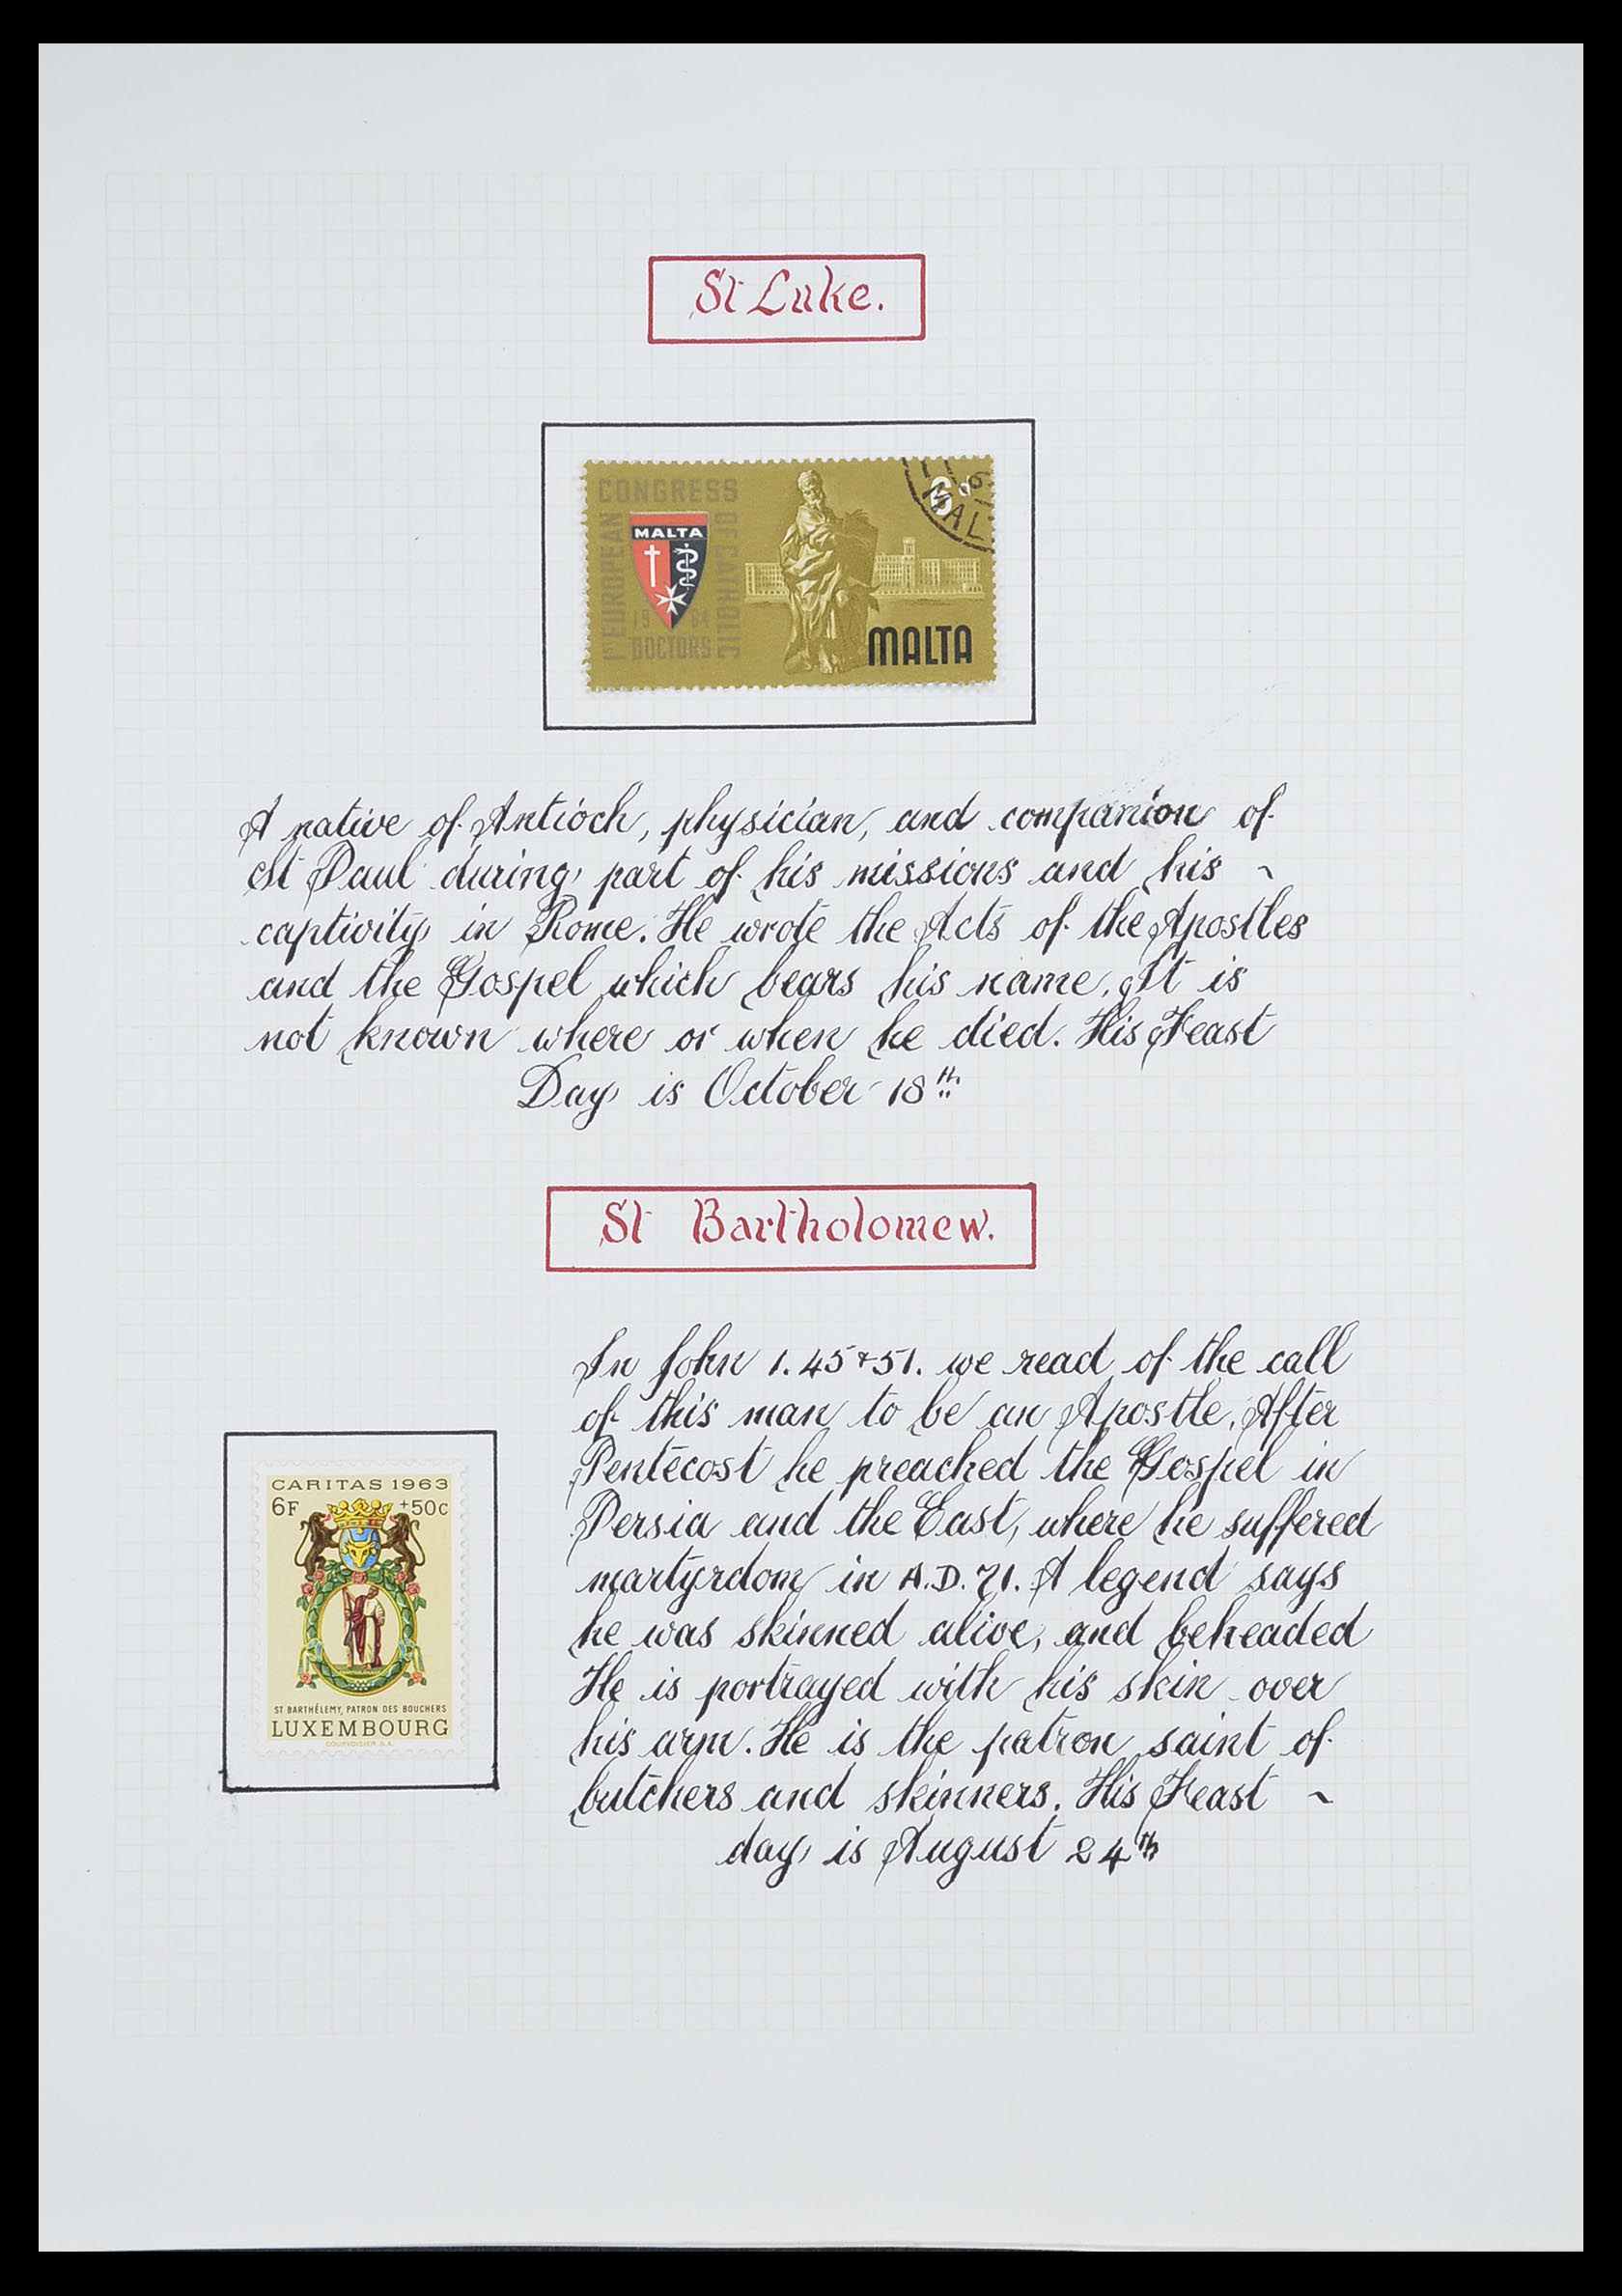 St Luke.
CONGRESS
1ST EUROPEAN
OF CATHOLIC
MALTA
19 64
DOCTORS
6d
MAL
MALTA
A native of Antioch, physician, and companion of
St Paul during part of his missions and his ~
captivity in Rome. He wrote the Acts of the Apostles
and the Gospel which bears his name. It is
not known where or when he died. His Feast
Day is October 18th
St Bartholomew.
In John 1. 45+51. we read of the call
of this man to be an Apostle. After
Pentecost he preached the Gospel in
Persia and the East, where he suffered
martyrdom in A.D. 71. A legend says
he was skinned alive, and beheaded
He is portrayed with his skin over
his arm. He is the patron saint of
butchers and skinners. His Feast ~
day is August 24th
CARITAS 1963
6F +50c
ST BARTHÉLEMY, PATRON DES BOUCHERS
LUXEMBOURG
COURVOISIER S.A.